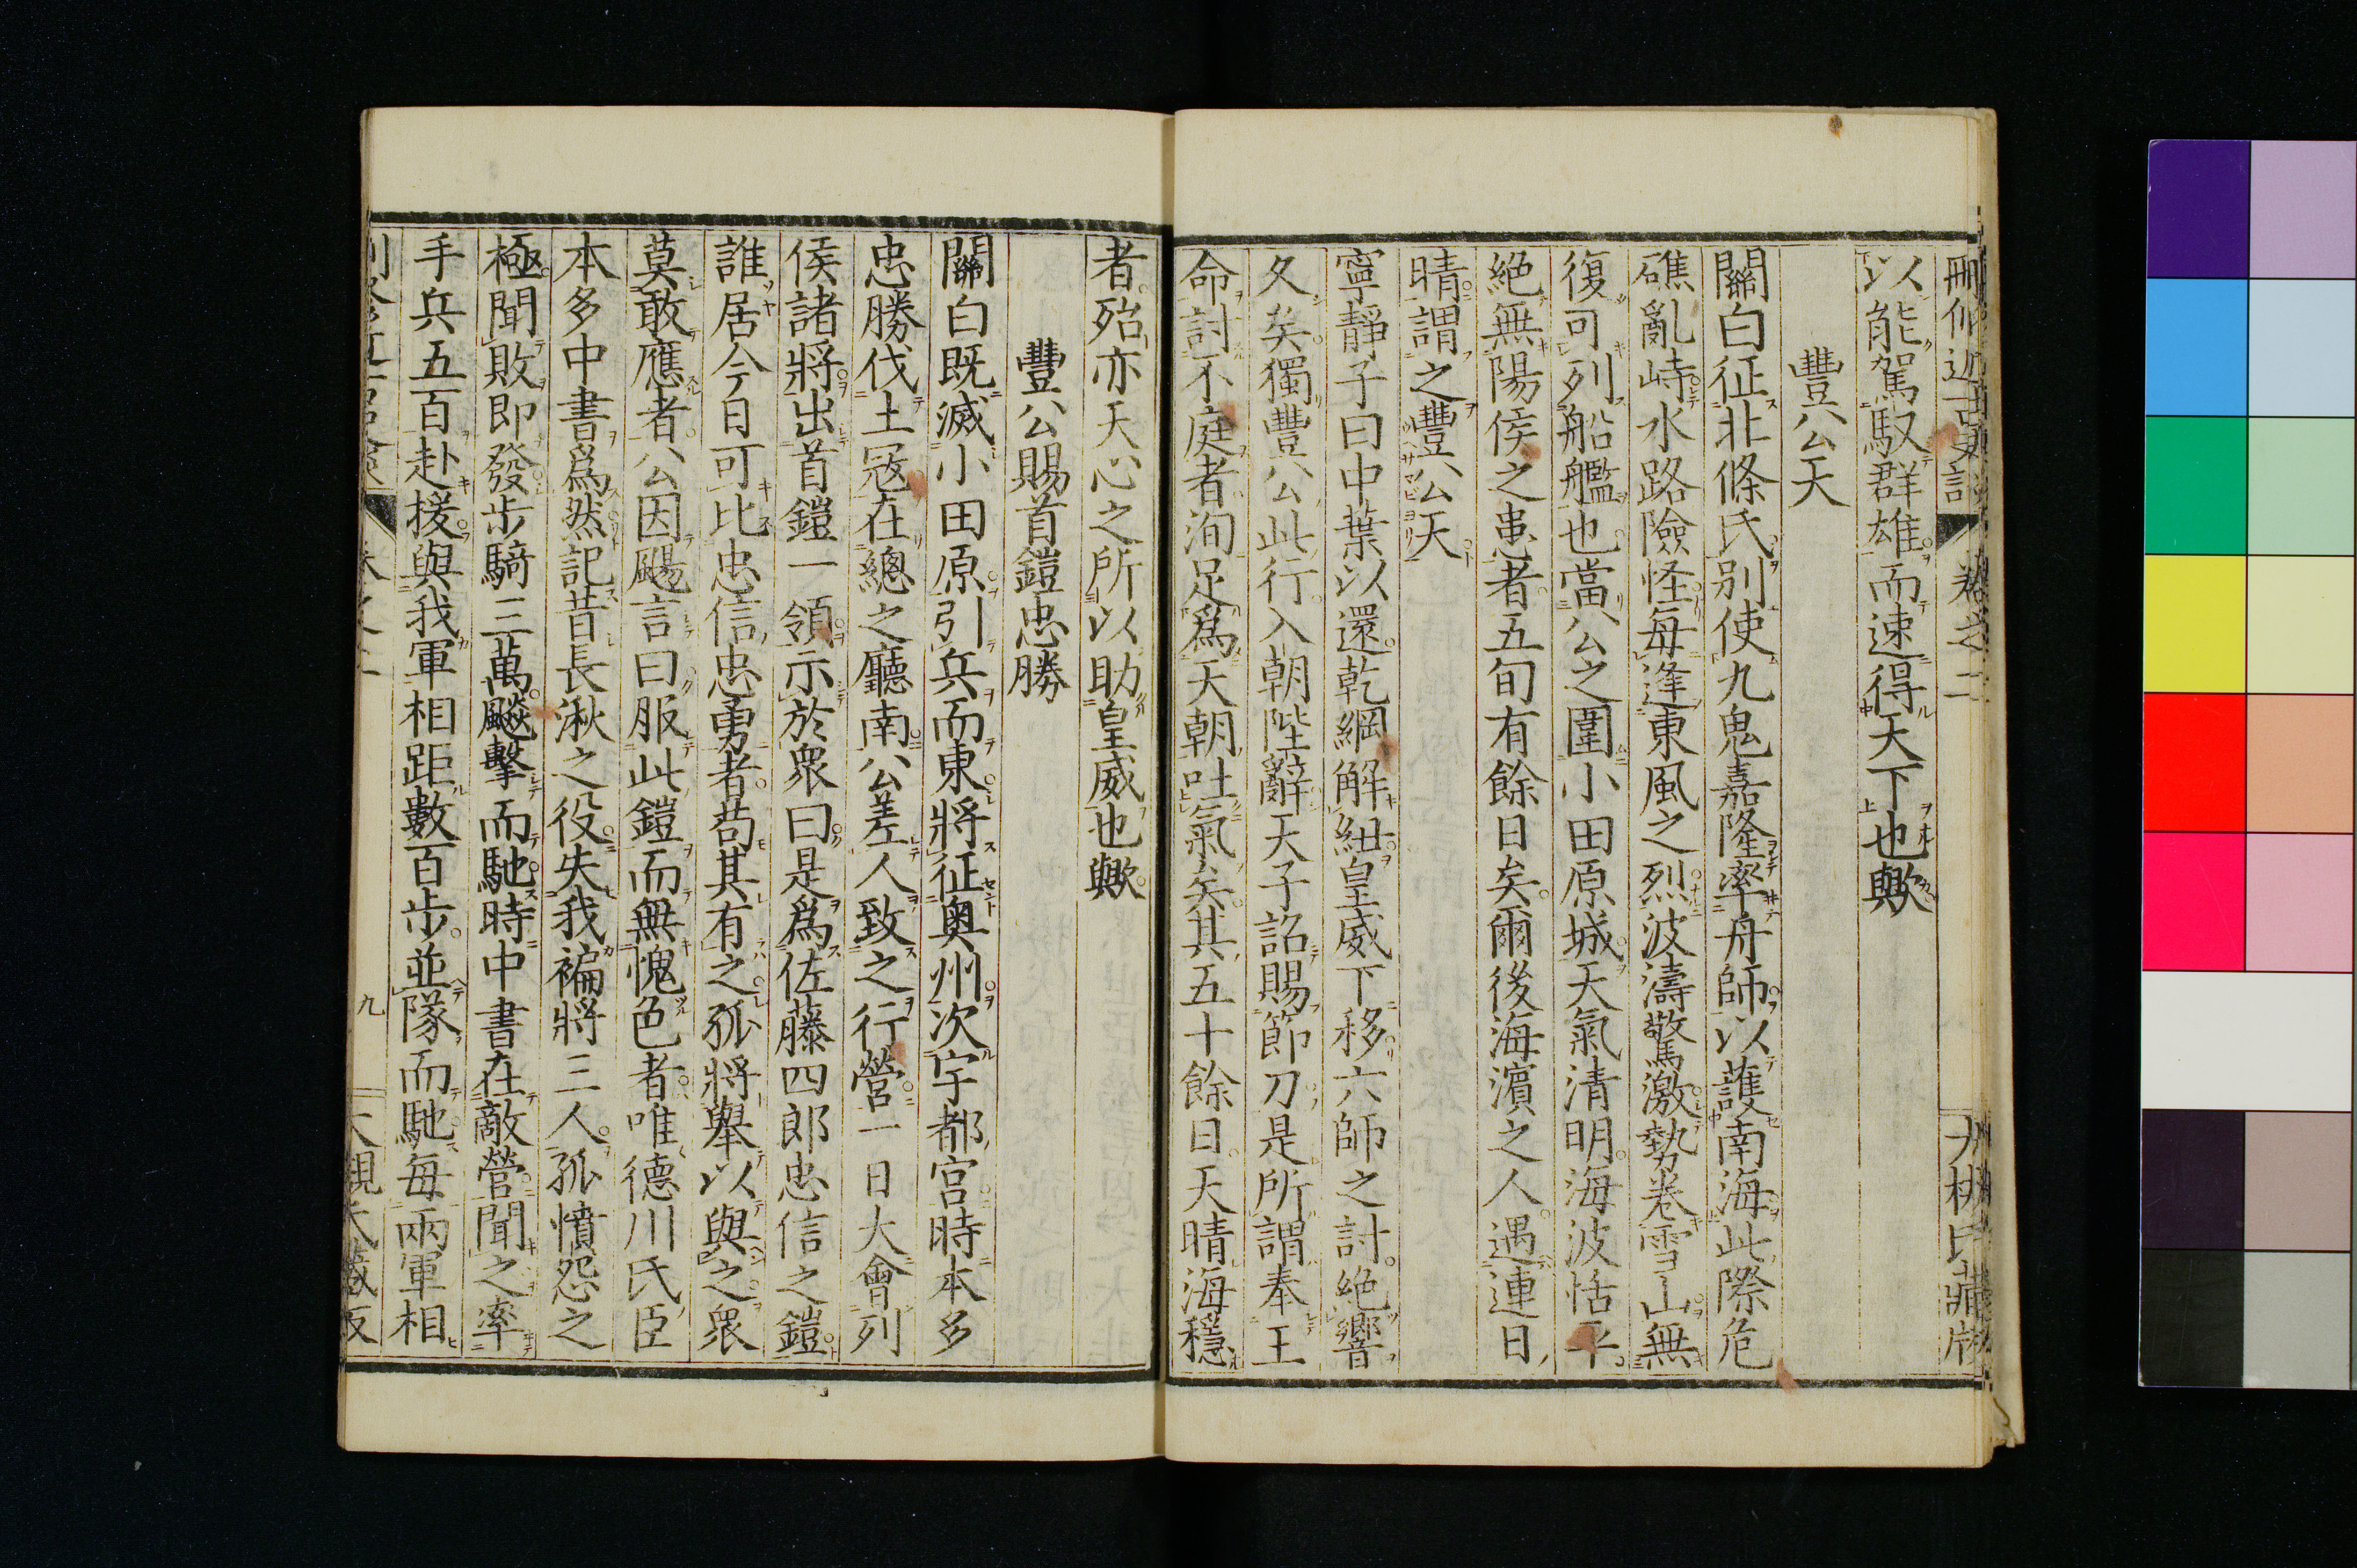 以能駕馭群雄而速得天下也歟
豐公天
關白征北條氏別使九鬼嘉隆率舟師以護南海此際危
礁亂峙水路險怪每逢東風之烈波濤驚激勢卷雪山無
復可列船艦也當公之圍小田原城天氣清明海波恬平
絕無陽侯之患者五旬有餘日矣爾後海濱之人遇連日
晴謂之豐公天
寧靜子曰中葉以還乾綱解紐皇威下移六師之討絕響
久矣獨豐公此行入朝陛辭天子詔賜節刀是所謂奉王
命討不庭者洵足爲天朝吐氣矣其五十餘日天晴海穩
者殆亦天心之所以助皇威也歟
豐公賜首鎧忠勝
關白既滅小田原引兵而東將征奧州次宇都宮時本多
忠勝伐土寇在總之廳南公差人致之行營一日大會列
侯諸將出首鎧一領示於衆曰是爲佐藤四郎忠信之鎧
誰居今日可比忠信忠勇者苟其有之孤將舉以與之衆
莫敢應者公因颺言曰服此鎧而無愧色者唯德川氏臣
本多中書爲然記昔長湫之役失我褊將三人孤憤怨之
極聞敗即發步騎三萬飈擊而馳時中書在敵營聞之率
手兵五百赴援與我軍相距數百步並隊而馳每兩軍相
九